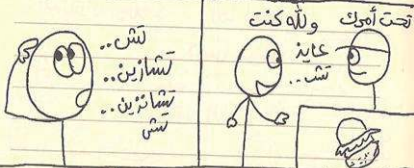 تحت أمرك
والله كنت
عايز
تش..
تش..
تشازين..
تشانزين..
تشى